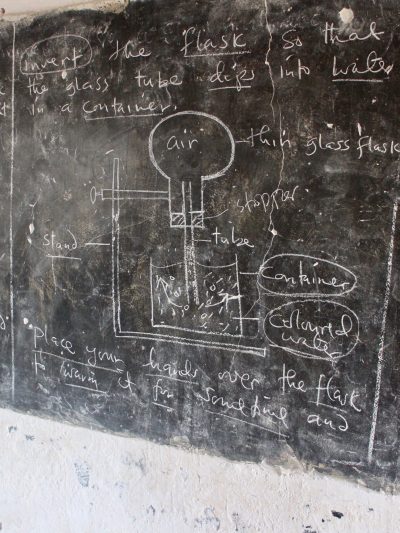 invert the flask so that
the glass tube dips into water
in a container.
air
thin glass flask
stopper
tube
stand
container
coloured
water
place your hands over the flask
to warm it for sometime and